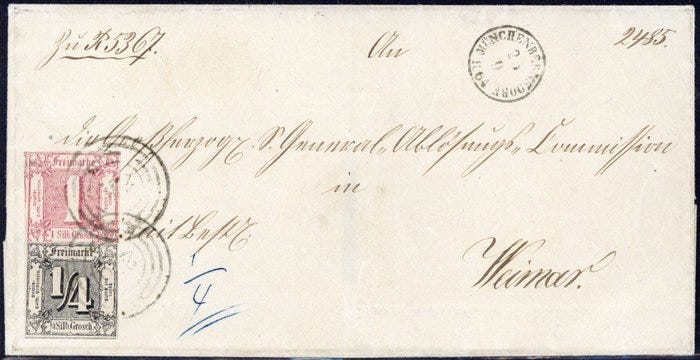 Zu R 5367. An 2485.
MÜNCHENBERNSDORF
22
9
die Großherzogl. S. General-Ablösungs-Commission
in
mit Best.
Weimar.
1/4
Freimarke
1
1 Silb. Grosch.
Freimarke
1/4
1/4 Silb. Grosch.